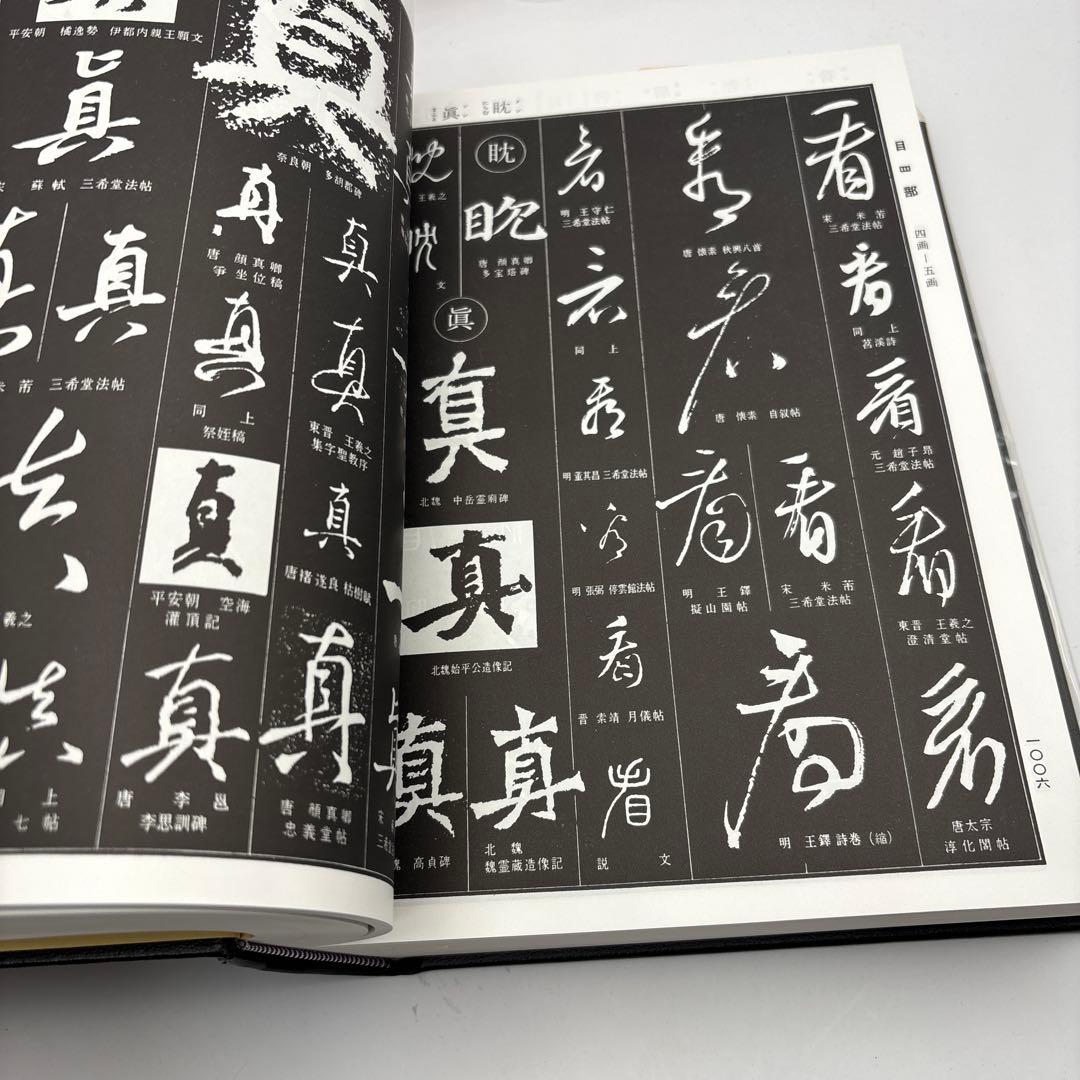 目
目
部
四画—五画
一〇〇六
看
宋 米芾
三希堂法帖
看
同上
苕溪詩
看
元 趙子昂
三希堂法帖
看
東晋 王羲之
澄清堂帖
看
唐太宗
淳化閣帖
看
唐 懐素 秋興八首
看
唐 懐素 自叙帖
看
宋 米芾
三希堂法帖
看
明 王鐸
擬山園帖
看
明 王鐸 詩巻（縮）
看
明 王守仁
三希堂法帖
看
同上
看
明 董其昌 三希堂法帖
看
明 張弼 停雲館法帖
看
晋 索靖 月儀帖
看
説文
眈
眈
唐 顔真卿
多宝塔碑
眈
王羲之
眈
文
眞
真
北魏 中岳霊廟碑
真
北魏始平公造像記
真
北魏
魏霊蔵造像記
真
高貞碑
眞 眈
真
奈良朝
多胡郡碑
真
東晋 王羲之
集字聖教序
真
唐褚遂良 枯樹賦
真
唐 顔真卿
忠義堂帖
真
唐 顔真卿
争坐位稿
真
同上
祭姪稿
真
平安朝 空海
灌頂記
真
唐 李邕
李思訓碑
平安朝 橘逸勢 伊都内親王願文
真
蘇軾 三希堂法帖
真
真
米芾 三希堂法帖
真
羲之
真
同上
七帖